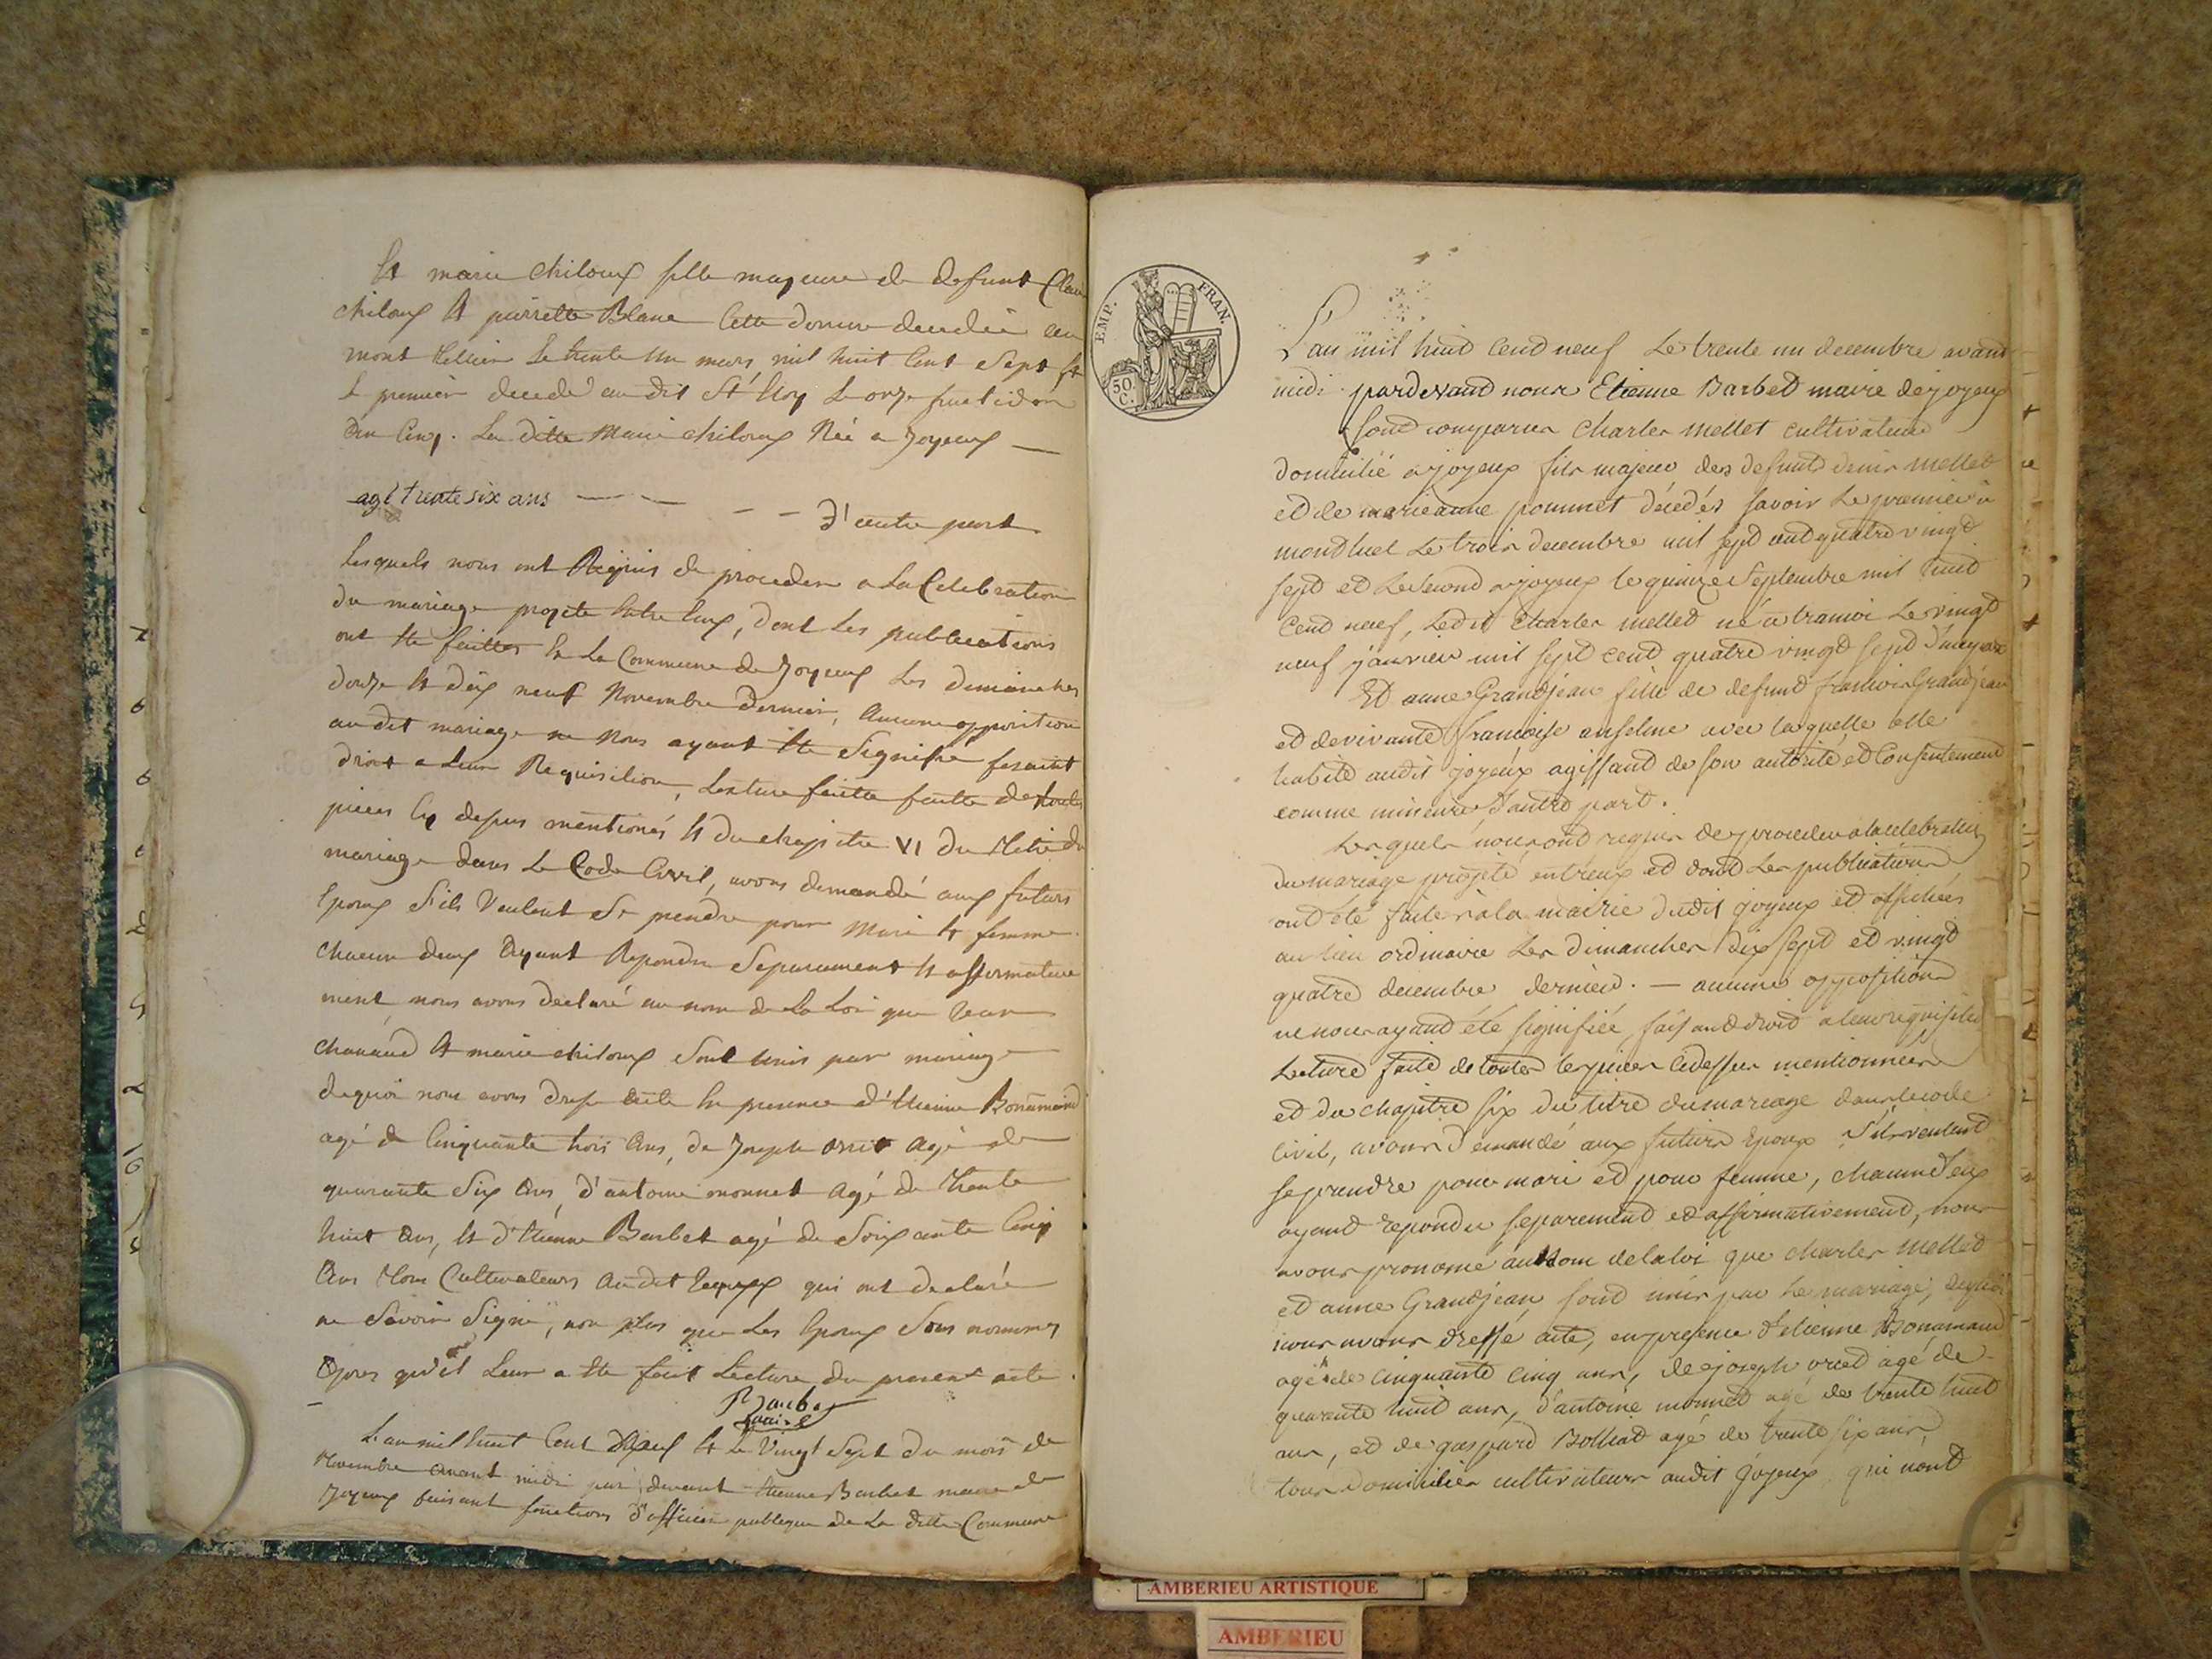 Et marie chiloux fille majeure de defunt Clau
chiloux Et pierrette Blanc Cette derniere decedée au
mont Le trente un mars mil huit Cent Sept Et
le premier decedé au dit St Eloy Le onze fructidor
an Cinq. La ditte Marie chiloux Née a Joyeux —
agé trente six ans — — — — D'autre part
Lesquels nous ont Requis de proceder a La Celebration
du mariage projete Entre Eux, dont Les publications
ont Ete faittes En La Commune de Joyeux Les dimanches
douze Et dix neuf Novembre dernier, Aucune opposition
au dit mariage ne Nous ayant Ete Signifié fesant
droit a Leur Requisition, Lecture faitte faitte de toutes
pieces Cy desus mentionés Et du chapitre VI du Titre du
mariage dans Le Code Civil, avons demandé aux futurs
Epoux S'ils Veulent Se prendre pour Mari Et femme
chacun deux Ayant Repondu Separement Et affirmative
ment, nous avons declaré au nom de La Loi que Jean
chanaud Et marie chiloux Sont Unis par mariage
dequoi nous avons dressé acte En presence d'Etienne Bonamand
agé de Cinquante trois Ans, de Joseph oriet Agé de
quarante Six Ans, d'antoine monnet Agé de Trente
huit Ans, Et d'Etienne Barbet agé de Soixante Cinq
Ans Tous Cultivateurs Au dit Joyeux qui ont declaré
ne Savoir Signé, non plus que Les Epoux Sous nommes
Apres qu'il Leur a Ete fait Lecture du present acte.
Barbet
maire
L'an mil huit Cent Neuf Et Le Vingt Sept du mois de
Novembre avant midi par devant Etienne Barbet maire de
Joyeux faisant fonctions d'officier publique de La ditte Commune
EMP. FRAN.
50 C.
L'an mil huit Cent neuf Le trente un decembre avant
midi pardevant nous Etienne Barbet maire de joyeux
sont comparus Charles mellet cultivateur
domicilié a joyeux fils majeur des defunts denis mellet
et de marieanne pommet décedés savoir Le premier à
montluel Le trois decembre mil sept cent quatre vingt
sept et Le second a joyeux le quinze Septembre mil huit
Cent neuf, Ledit Charles mellet né à tramoi Le vingt
neuf janvier mil sept cent quatre vingt sept d'une part
Et anne Grandjean fille de defunt francois Grandjean
et de vivante francoise anselme avec laquelle elle
habite audit joyeux agissant de son autorité et Consentement
comme mineure, d'autre part.
Lesquels nous ont requis de proceder a la celebration
du mariage projeté entr'eux et dont Les publications
ont été faites a la mairie dudit joyeux et affichées
au lieu ordinaire Les dimanches dix sept et vingt
quatre decembre dernier. — aucune opposition
ne nous ayant été signifiée, faisant droit a leur requisition
Lecture faite de toutes les pieces cidessus mentionnées
et du chapitre six du titre du mariage dans le code
Civil, avons demandé aux futurs Epoux S'ils veulent
se prendre pour mari et pour femme, chacun d'eux
ayant repondu separement et affirmativement, nous
avons prononcé au nom de la loi que Charles Mellet
et anne Grandjean sont unis par Le mariage, dequoi
nous avons dressé acte, en presence d'etienne Bonamand
agé de cinquante cinq ans, de joseph oriet agé de
quarante huit ans, d'antoine monnet agé de trente huit
ans, et de gaspard Bolliat agé de trente six ans,
tous domiciliés cultivateurs audit joyeux, qui n'ont
AMBERIEU ARTISTIQUE
AMBERIEU